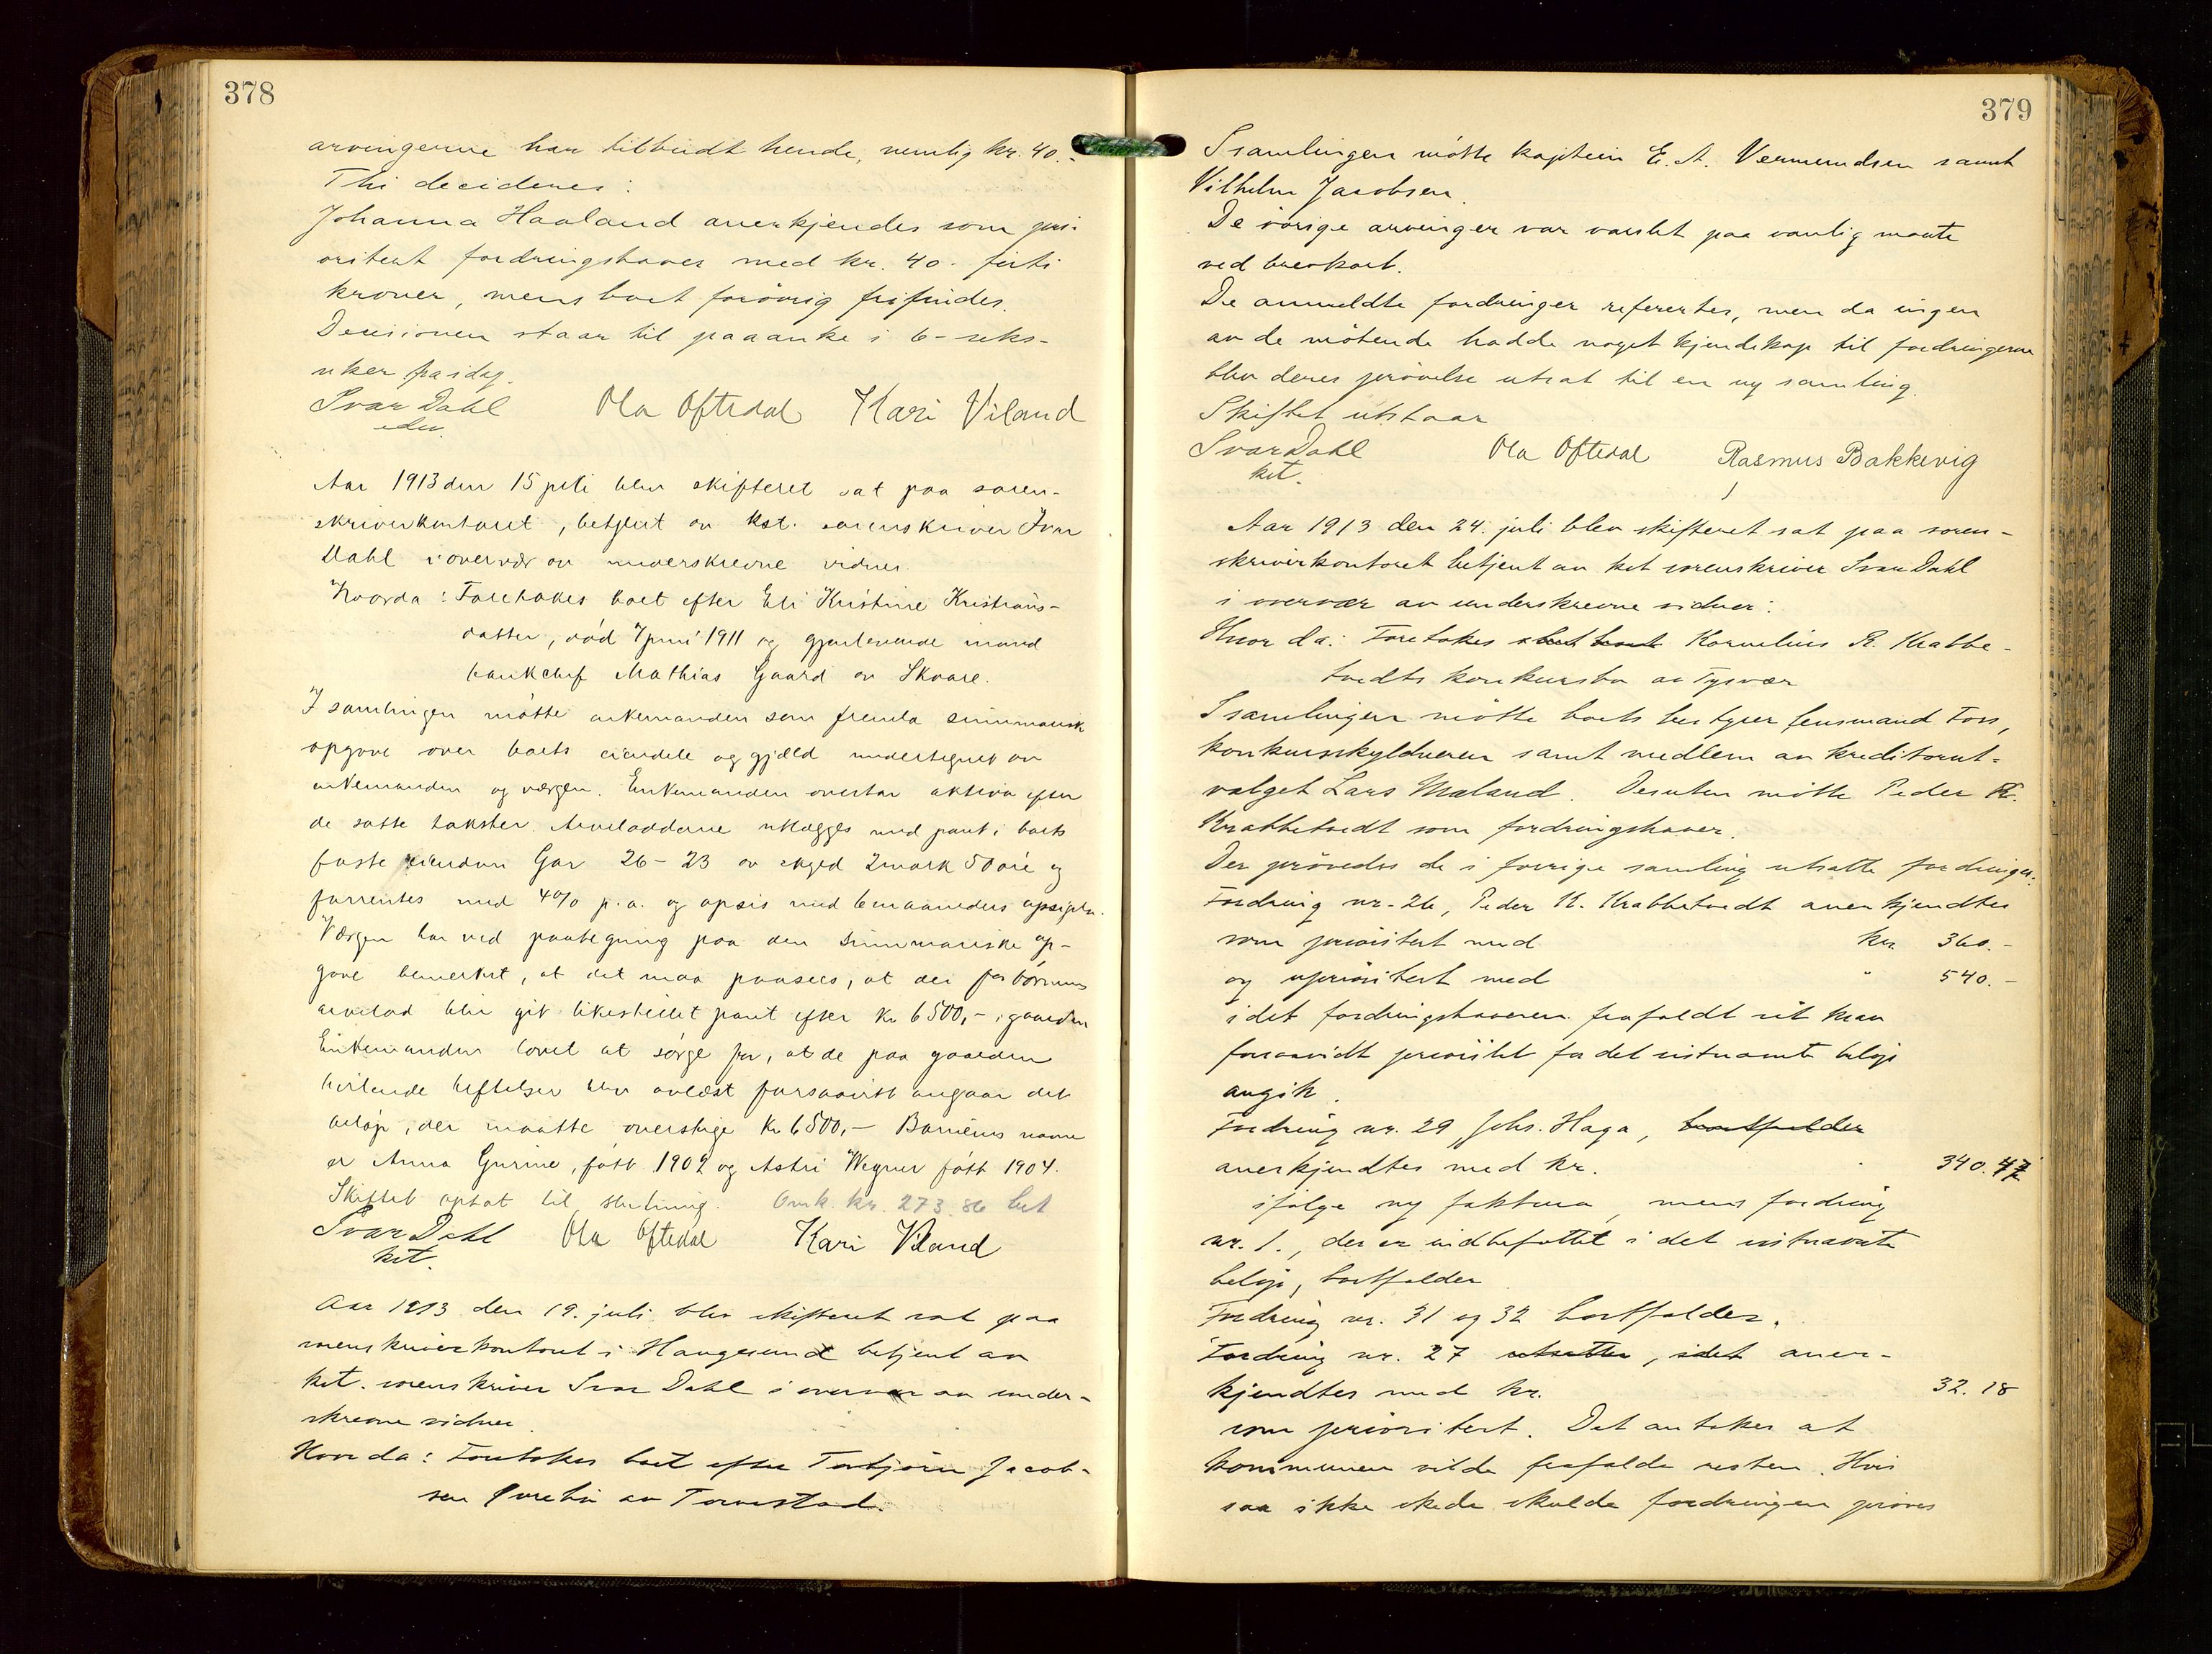 378
arvingerne har tilbudt hende, nemlig kr. 40.-
Thi decideres:
Johanna Haaland anerkjendes som pri-
oritert fordringshaver med kr. 40.- firti
kroner, mens boet forøvrig frifindes.
Decisionen staar til paaanke i 6 - seks -
uker fra idag.
Ivar Dahl Ola Oftedal Kari Viland
Aar 1913 den 15 juli blev skifteret sat paa soren-
skriverkontoret, betjent av kst. sorenskriver Ivar
Dahl i overvær av underskrevne vidner.
Hvorda: Foretokes boet efter Eli Kristine Kristians-
datter, død 7 juni 1911 og gjenlevende mand
bankchef Mathias Gaard av Skaare.
I samlingen møtte enkemanden som fremla summarisk
opgave over boets eiendele og gjæld undertegnet av
enkemanden og værgen. Enkemanden overtar aktiva efter
de satte takster. Arveloddene utlægges med pant i boets
faste eiendom Gar 26 - 23 av skyld 2 mark 50 øre og
forrentes med 4% p.a. og opsies med 6 maaneders opsigelse.
Værgen har ved paategning paa den summariske op-
gave bemerket, at det maa paasees, at der for børnenes
arvelod blir git likestillet pant efter kr 6500,- i gaarden
Enkemanden lovet at sørge for, at de paa gaarden
hvilende heftelser blir avlæst forsaavidt angaar det
beløp, der maatte overstige kr 6500,- Barnenes navne
er Anna Gurine, født 1902 og Astri Wegner født 1904.
Skiftet optat til slutning. Omk. kr. 273.86 bet
Ivar Dahl Ola Oftedal Kari Viland
kst.
Aar 1913 den 19. juli blev skifteret sat paa
sorenskriverkontoret i Haugesund betjent av
kst. sorenskriver Ivar Dahl i overvær av under-
skrevne vidner.
Hvorda: Foretokes boet efter Torbjørn Jacob-
sen av Torvestad.
379
I samlingen møtte kaptein E. A. Vermundsen samt
Vilhelm Jacobsen.
De øvrige arvinger var varslet paa vanlig maate
ved brevkort.
De anmeldte fordringer refereertes, men da ingen
av de møtende hadde noget kjendskap til fordringerne
blev deres prøvelse utsat til en ny samling.
Skiftet utstaar
Ivar Dahl Ola Oftedal Rasmus Bakkevig
kst.
Aar 1913 den 24. juli blev skifteret sat paa soren-
skriverkontoret betjent av kst sorenskriver Ivar Dahl
i overvær av underskrevne vidner:
Hvor da: Foretokes Kornelius R. Krabbe-
tvedts konkursbo av Tysvær
I samlingen møtte boets bestyrer lensmand Foss,
konkursskyldneren samt medlem av kreditorut-
valget Lars Maland. Desuten møtte Peder K.
Krabbetvedt som fordringshaver.
Der prøvedes de i forrige samling utsatte fordringer:
Fordring nr. 26, Peder K. Krabbetvedt anerkjendtes
som prioritert med kr. 360.-
og uprioritert med " 540.-
idet fordringshaveren frafaldt sit krav
forsaavidt prioritet for det sistnævnte beløp
angik.
Fordring nr. 29, Johs. Haga, bortfalder
anerkjendtes med kr. 340.47
ifølge ny faktura, mens fordring
nr. 1., der er indbefattet i det sistnævnte
beløp, bortfalder
Fordring nr. 31 og 32 bortfalder.
Fordring nr. 27 utsattes, idet aner-
kjendtes med kr. 32.18
som prioritert. Det antokes at
kommunen vilde frafalde resten. Hvis
saa ikke skede skulde fordringen prøves